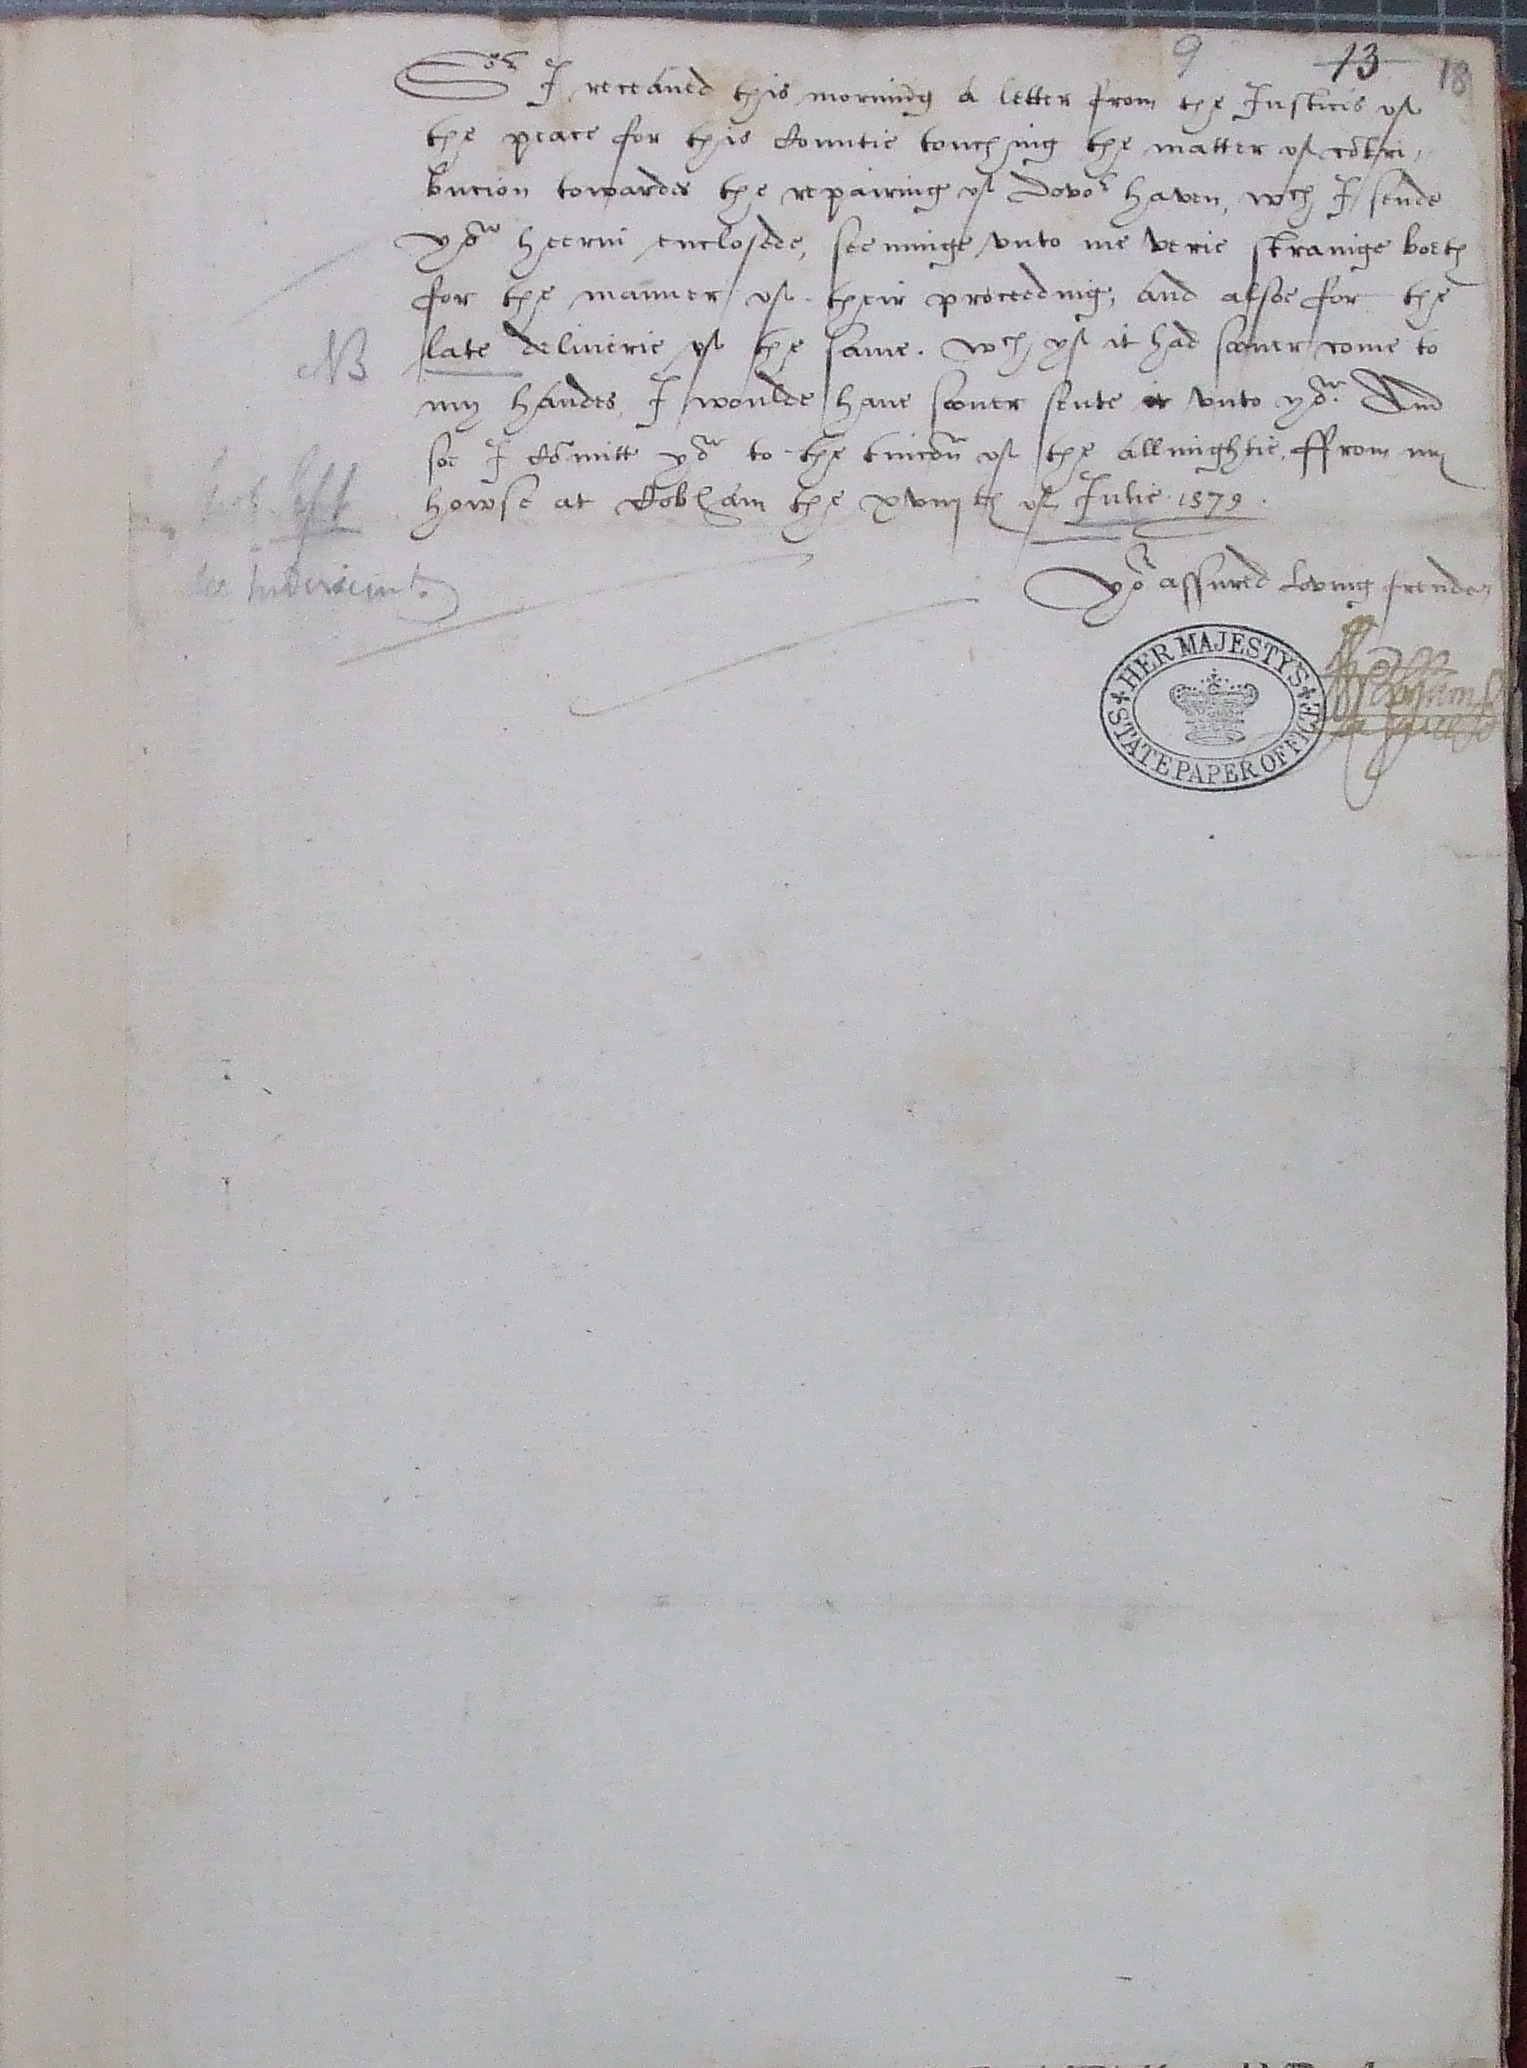 9 13 18
Sr I receaued this morning a letter from the Justicis of
the peace for this Countie touching the matter of cōtri,,
bucion towardes the repairing of Dovor haven, wch I sende
yow heerin enclosede, seeminge vnto me verie strainge boeth
for the manner of their proceeding, and alsoe for the
NB late deliuerie of the same. wch yf it had sooner come to
my handes, I woulde haue sooner sente it vnto yow. And
soe I cōmitt yow to the tuicōn of the allmightie, ffrom my
howse at Cobham the xviijth of Julie. 1579.
Yor assured loving frende
HER MAJESTY'S
STATE PAPER OFFICE